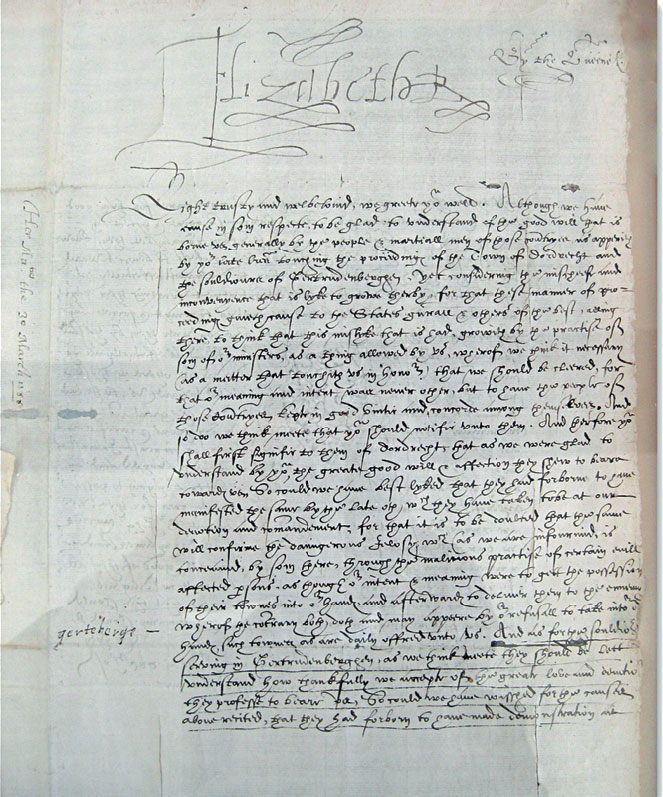 Elizabeth R
By the Queene
Right trusty and welbeloued, we greete yow well. Although we haue
cause in som respects, to be glad to vnderstand of the good will that is
borne vs generally by the people & martiall men of those Contries, as appereth
by yor late touching the proceeding of the Town of Dordrecht and
the souldiours of Gertrudenberghen, Yet considering the mischeef and
inconvenience that is lyke to growe therby, for that these manner of pro-
ceeding giueth cause to the States generall & others of the best
there, to think that this mislyke that is had, groweth by the practise of
som of or ministers, as a thing allowed by vs, wherof we think it necessary
as a matter that toucheth vs in honor, that we should be cleered, for
that or meaning and intent was neuer other, but to haue the people of
those Contryes kept in good vnitie and concorde among themselues. And
so doo we think meete that yow should notifie vnto them. And therfore yow
shall first signifie to them of Dordrecht, that as we were glad to
vnderstand by yow the greate good will & affection they shew to beare
towards vs, So could we haue best lyked that they had forborne to haue
manifested the same by the late oth, wch they haue taken to be at our
deuotion and comandement, for that it is to be doubted that the same
will confirme the daungerous Jelosy, wch as we are informed, is
conceaued, by som there, through the malicious practise of certain euill
affected psons, as though or intent & meaning were to get the possession
of their townes into or hands and afterwards to deliuer them to the enemie
wherof the contrary both doth and may appeere by or refusall to take into or
hands, such townes as are daily offred vnto vs. And as for the souldiors
gerteberge —
seruing in Gertrudenberghen, as we think meete they should be lett
vnderstand how thankfully we accepte of the greate loue and deuotion
they professe to beare vs, So could we haue wisshed for the causes
aboue recited, that they had forborn to haue made demonstration at
Her Matie the 30 March